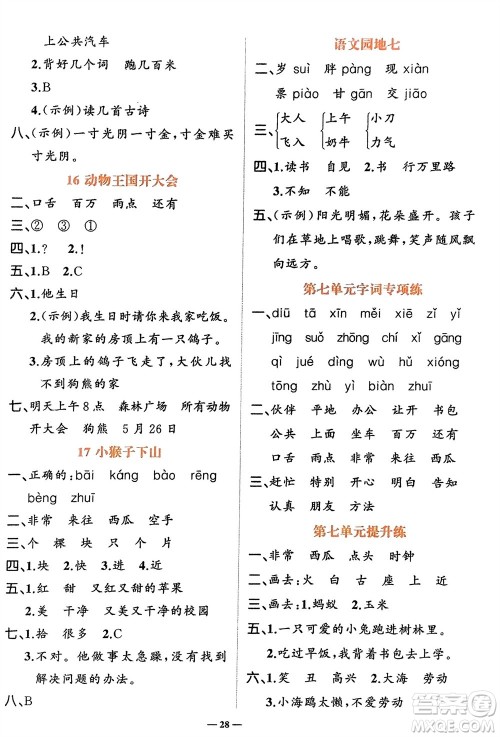 上公共汽车
2.背好几个词　跑几百米
3.B
4.(示例)读几首古诗
八、(示例)一寸光阴一寸金,寸金难买
寸光阴。
16 动物王国开大会
二、口舌　百万　雨点　还有
三、②　①　③
四、1.?　2.!
五、1.B　2.C
六、1.他生日
2.(示例)我生日时请你来我家吃饭。
我的新家的房顶上有一只鸽子。
3.房顶上的鸽子飞走了,大伙儿找
不到狗熊的家
七、明天上午8点　森林广场　所有动物
开大会　狗熊　5月26日
17 小猴子下山
一、正确的:bāi　káng　bào　rēng
bèng　zhuī
二、非常　来往　西瓜　空手
三、个　棵　块　只　片
四、1.块　2.快　3.进　4.近
五、1.刮　甘　又红又甜的苹果
2.美　干净　又美又干净的校园
七、1.拾　很多　2.C
3.不对。他做事太急躁,没有找到
解决问题的办法。
八、B
语文园地七
二、岁 suì　胖 pàng　现 xiàn
票 piào　甘 gān　交 jiāo
三、大人　上午　小刀
飞入　奶牛　力气
四、1.读书　自见　2.书　行万里路
3.不知　不能
五、(示例)阳光明媚,花朵盛开。孩子
们在草地上唱歌,跳舞,笑声随风飘
向远方。
第七单元字词专项练
一、diū　tā　xīn　měi　zǐ　yǐ
jīng　suǒ　zhōng　chí　xí　gāng
qì　jué　dīng　wèi　hù　xióng
tōng　zhù　biàn　zhuī
二、伙伴　平地　办公　开让　书包
公共　上面　座位　来往　西瓜
口舌　雨点　非常　时候　告诉
认真　朋友　方法
第七单元提升练
一、非常　西瓜　点头　时钟
二、画去:块　往　古　座　近
三、画去:1.蚂蚁　2.玉米
四、1.一只可爱的小兔跑进树林里。
2.吃过早饭
六、1.笑　苦　兴　2.大海　劳动
3.小海鸥太懒,不爱劳动
28
答案圈
MXQE.COM